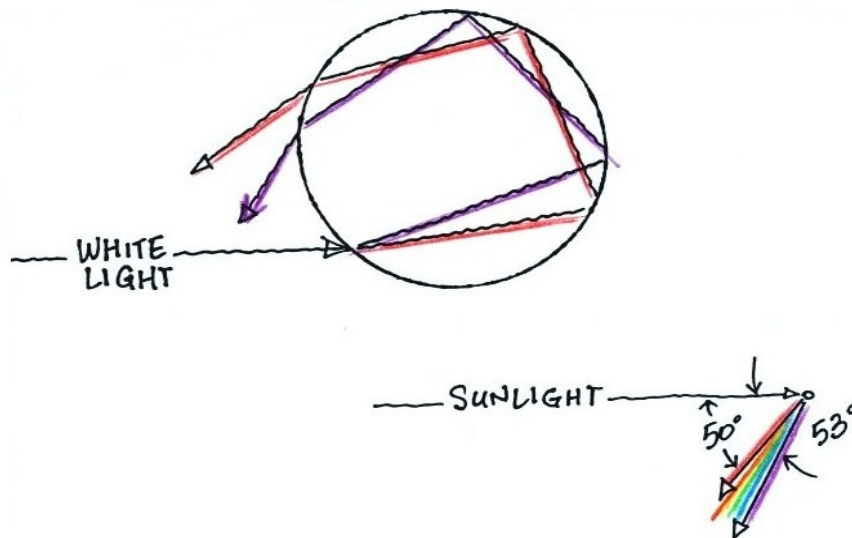 WHITE
LIGHT
SUNLIGHT
50° 53°